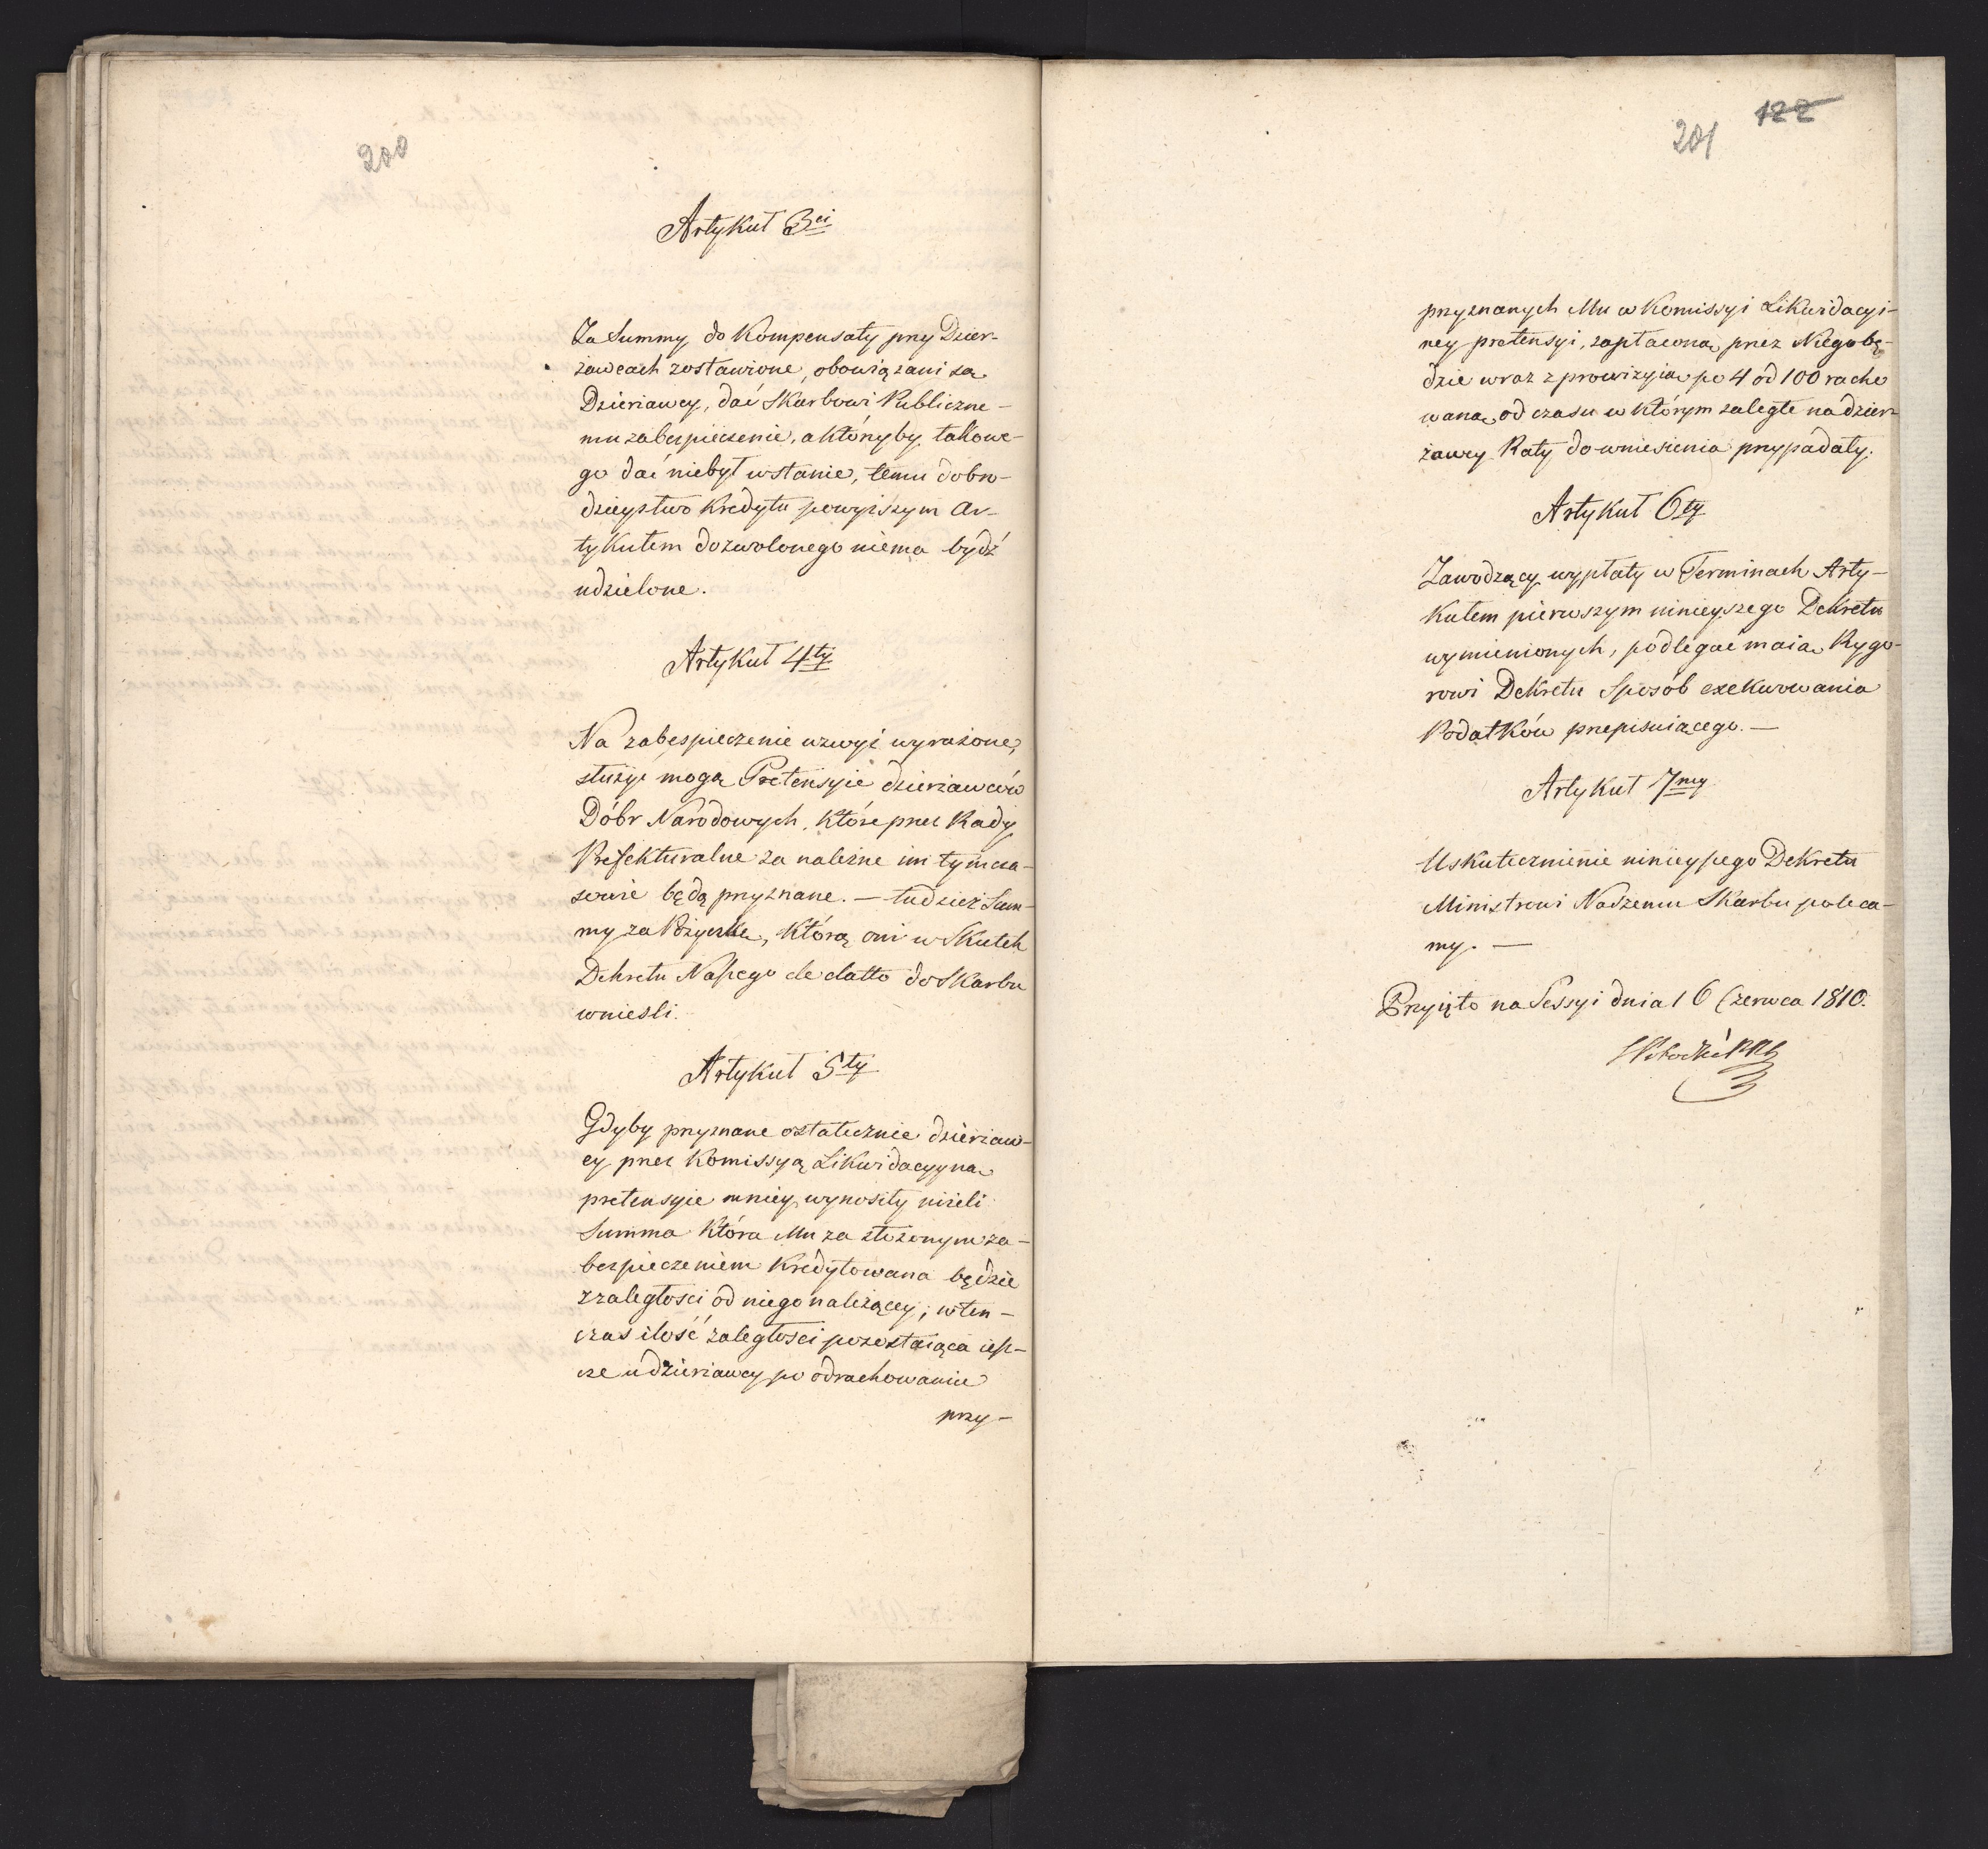 200
Artykuł 3ci
Za Summy do Kompensaty przy Dzier-
żawcach zostawione, obowiązani są
Dzierżawcy, dać Skarbowi Publiczne-
mu zabezpieczenie, a któryby takowe-
go dać niebył wstanie, temu dobro-
dzieystwo Kredytu powyższym Ar-
tykułem dozwolonego niema bydź
udzielone.
Artykuł 4ty
Na zabespieczenie wzwyż wyrażone,
służyć mogą Pretensyie dzierżawców
Dóbr Narodowych, które przez Rady
Prefekturalne za należne im tymcza-
sowie będą przyznane. — tudzież Sum-
my za Pożyczkę, którą oni w Skutek
Dekretu Naszego de datto do Skarbu
wnieśli.
Artykuł 5ty
Gdyby przyznane ostatecznie dzierżaw-
cy przez Komissyą Likwidacyyną
pretensyie mniey wynosiły niżeli
Summa która Mu za złożonym za-
bezpieczeniem Kredytowana będzie
z zaległości od niego należącey; wten-
czas ilość zaległości pozostaiąca iesz-
cze u dzierżawcy po odrachowaniu
przy-
122
201
przyznanych Mu w Komissyi Likwidacyi-
ney pretensyi, zapłaconą przez Niego bę-
dzie wraz z prowizyią po 4 od 100 racho
waną, od czasu w którym zaległe na dzier-
żawcy Raty do wniesienia przypadały.
Artykuł 6ty
Zawodzący wypłaty w Terminach Arty-
kułem pierwszym ninieyszego Dekretu
wymienionych, podlegać maią Rygo-
rowi Dekretu Sposób exekwowania
Podatków przepisuiącego. —
Artykuł 7my
Uskutecznienie ninieyszego Dekretu
Ministrowi Naszemu Skarbu poleca-
my. —
Przyięto na Sessyi dnia 16 Czerwca 1810.